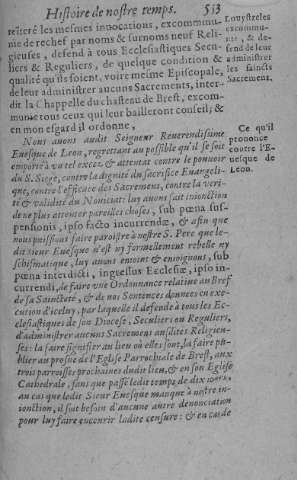 Histoire de nostre temps. 513
reïteré les mesmes invocations, excommu-
nie de rechef par noms & surnoms neuf Reli-
gieuses, defend à tous Ecclesiastiques Secu-
liers & Reguliers, de quelque condition &
qualité qu'ils soient, voire mesme Episcopale,
de leur administrer aucuns Sacrements, inter-
dit la Chappelle du chasteau de Brest, excom-
munie tous ceux qui leur bailleront conseil; &
en mon esgard il ordonne,
Nous avons audit Seigneur Reverendissime
Evesque de Leon, regrettant au possible qu'il se soit
emporté à vn tel excez, & attentat contre le pouvoir
du S. Siege, contre la dignité du sacrifice Euangeli-
que, contre l'efficace des Sacremens, contre la veri-
té & validité du Noviciat: luy avons fait injonction
de ne plus attenter pareilles choses, sub pœna sus-
pensionis, ipso facto incurrendæ, & afin que
nous puissions faire paroistre à nostre S. Pere que le-
dit sieur Evesque n'est ny formellement rebelle ny
schismatique, luy avons enjoint & enjoignons, sub
pœna interdicti, ingressus Ecclesiæ, ipso in-
currendi, de faire vne Ordonnance relative au Bref
de sa Saincteté, & de nos Sentences données en exe-
cution d'iceluy, par laquelle il defende à tous les Ec-
clesiastiques de son Diocese, Seculiers ou Reguliers,
d'administrer aucuns Sacremens ausdites Religien-
ses: la faire signifier au lieu où elles sont, la faire pu-
blier au prosne de l'Eglise Parrochiale de Brest, aux
trois parroisses prochaines dudit lieu, & en son Eglise
Cathedrale, sans que passé ledit temps de dix jours,
au cas que ledit Sieur Evesque manque à nostre in-
jonction, il soit besoin d'aucune autre denonciation
pour luy faire encourir ladite censure: & en cas de
excommu-
nie, & de-
fend de leur
administrer
les
Sacrement.
Ce qu'il
prononce
contre l'E-
vesque de
Leon.